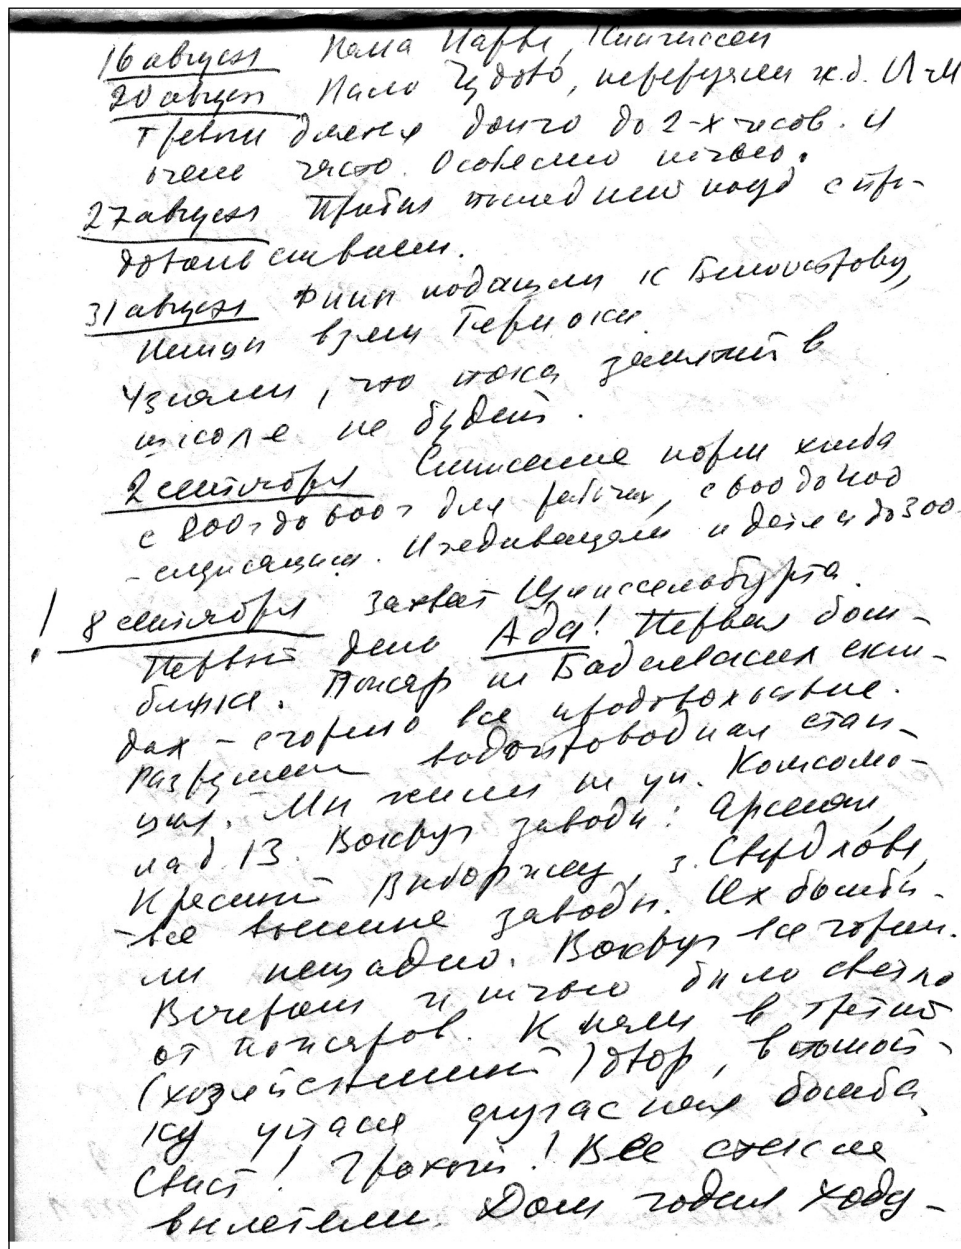 16 августа Пала Нарва, Кингиссеп
20 августа Пало Чудово, перерезали ж.д. Л-М
Тревоги длятся долго до 2-х часов и
очень часто. Особенно ночью.
27 августа Прибыл последний поезд с про-
довольствием.
31 августа Финны подошли к Белоострову,
Немцы взяли Териоки.
Узнали, что пока занятий в
школе не будет.
2 сентября Снижение нормы хлеба
с 800г до 600г для рабочих, с 600 до 400
- служащим. Иждивенцам и детям до 300.
! 8 сентября Захват Шлиссельбурга.
Первый день Ада! Первая бом-
бежка. Пожар на Бадаевских скла-
дах - сгорело все продовольствие.
Разрушена водопроводная стан-
ция. Мы жили на ул. Комсомо-
ла д. 13. Вокруг заводы: Арсенал,
Красный Выборжец, з. Свердлова,
- все военные заводы. Их бомби-
ли нещадно. Вокруг все горит.
Вечером и ночью было светло
от пожаров. К нам в третий
(хозяйственный) двор, в помой-
ку упала фугасная бомба.
Свист! Грохот! Все стекла
вылетели. Дом ходил ходу-